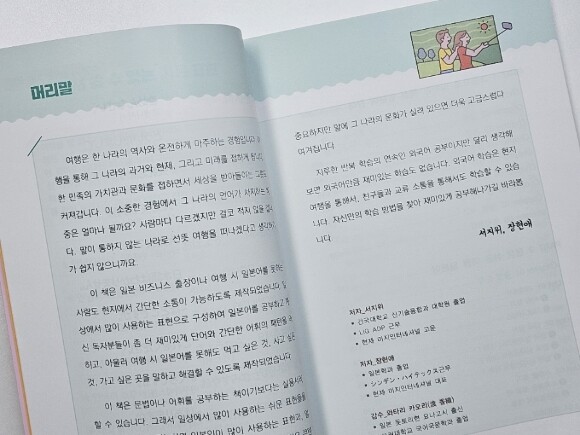 머리말
여행은 한 나라의 역사와 온전하게 마주하는 경험입니다.
행을 통해 그 나라의 과거와 현재, 그리고 미래를 접하게 됩니다.
한 민족의 가치관과 문화를 접하면서 세상을 받아들이는
커져갑니다. 이 소중한 경험에서 그 나라의 언어가 차지하는
중은 얼마나 될까요? 사람마다 다르겠지만 결코 적지 않을
다. 말이 통하지 않는 나라로 선뜻 여행을 떠나겠다고 생각하기
가 쉽지 않으니까요.
이 책은 일본 비즈니스 출장이나 여행 시 일본어를 못하는
사람도 현지에서 간단한 소통이 가능하도록 제작되었습니다.
상에서 많이 사용하는 표현으로 구성하여 일본어를 공부하고
신 독자분들이 좀 더 재미있게 단어와 간단한 어휘의 패턴을
하고, 아울러 여행 시 일본어를 못해도 먹고 싶은 것, 사고 싶은
것, 가고 싶은 곳을 말하고 해결할 수 있도록 제작되었습니다.
이 책은 문법이나 어휘를 공부하는 책이기보다는 실용서
할 수 있습니다. 그래서 일상에서 많이 사용하는 쉬운 표현들을
일본인이 많이 사용하는 표현과,
중요하지만 말에 그 나라의 문화가 실려 있으면 더욱 고급스럽다
여겨집니다.
지루한 반복 학습의 연속인 외국어 공부이지만 달리 생각해
보면 외국어만큼 재미있는 학습도 없습니다. 외국어 학습은 현지
여행을 통해서, 친구들과 교류 소통을 통해서도 학습할 수 있습
니다. 자신만의 학습 방법을 찾아 재미있게 공부해나가길 바랍
니다.
서지위, 장현애
저자_서지위
• 건국대학교 신기술융합과 대학원 졸업
• LIG ADP 근무
• 현재 이지인터네셔널 고문
저자_장현애
• 일본학과 졸업
• シンデン・ハイテックス근무
• 현재 이지인터네셔널 대표
감수_와타리 카오리(渡 香織)
• 일본 돗토리현 요나고시 출신
국어국문학과 졸업